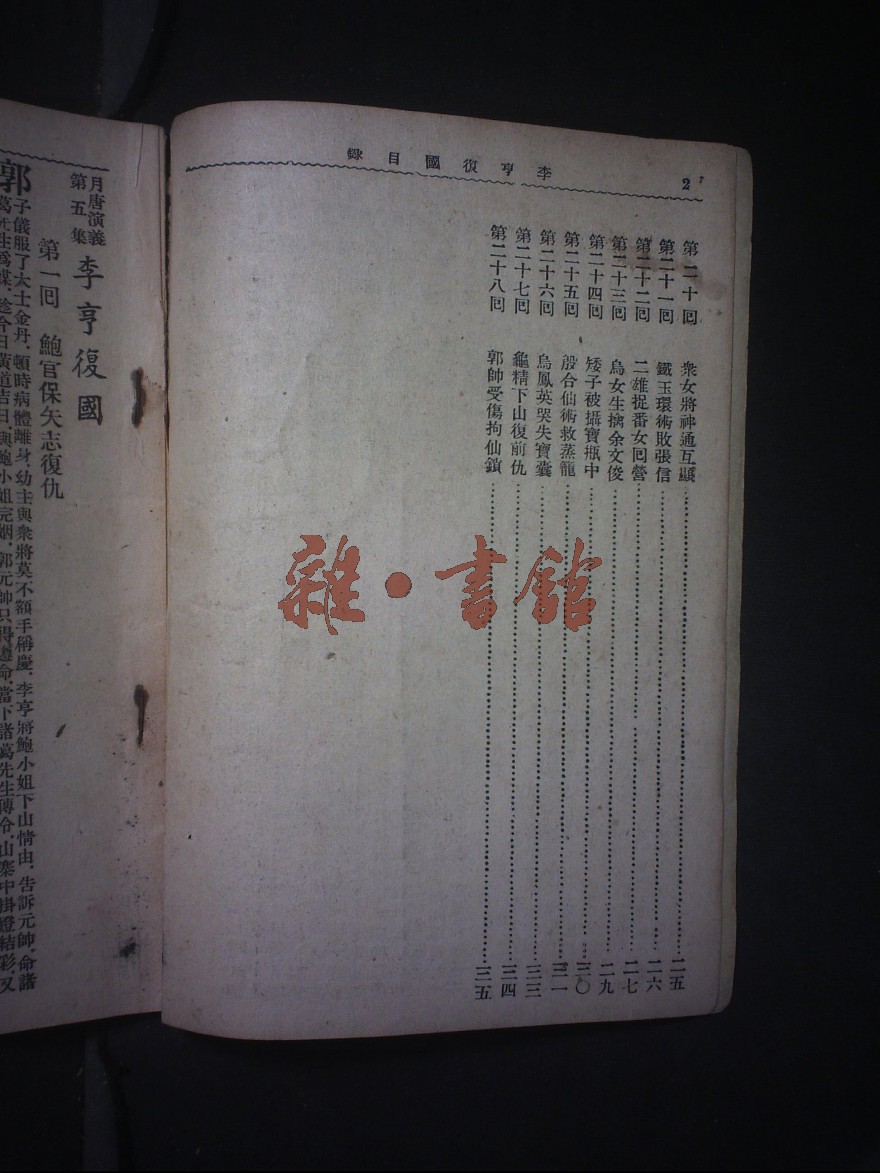 李亨復國目錄
2
第二十回 衆女將神通互顯 二五
第二十一回 鐵玉環術敗張信 二六
第二十二回 二雄捉番女回營 二七
第二十三回 烏女生擒余文俊 二九
第二十四回 矮子被攝寶瓶中 三〇
第二十五回 殷合仙術救蒸龍 三一
第二十六回 烏鳳英哭失寶囊 三三
第二十七回 龜精下山復前仇 三四
第二十八回 郭帥受傷拘仙鎖 三五
雜·書館
月唐演義
第五集
李亨復國
第一回 鮑官保矢志復仇
郭子儀服了大士金丹．頓時病體離身．幼主與衆將莫不額手稱慶．李亨將鮑小姐下山情由．告訴元帥．命諸
葛先生爲媒．趁今日黃道吉日．與鮑小姐完姻．郭元帥只得遵命．當下諸葛先生傳令．山寨中掛燈結彩．又